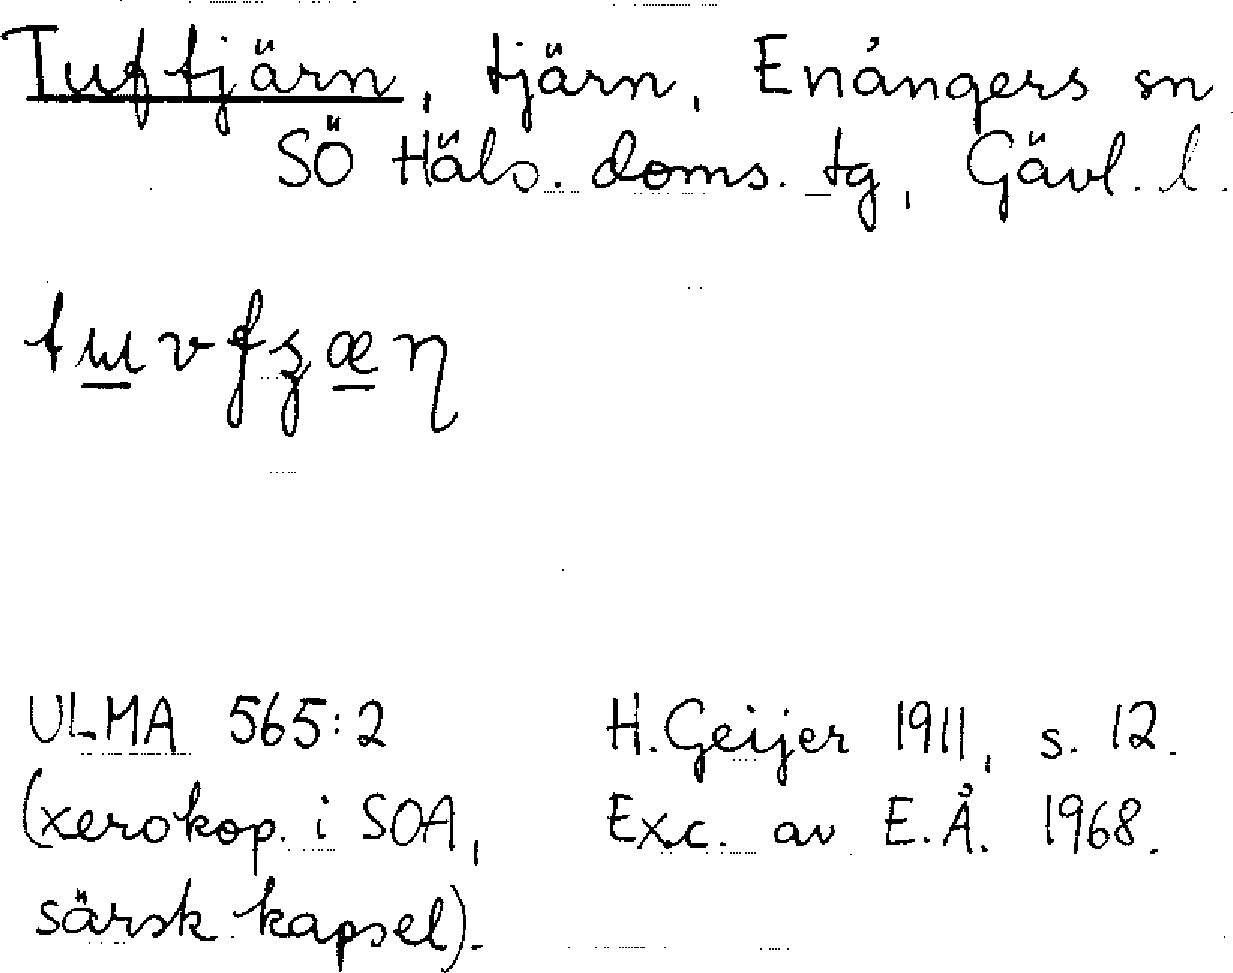 Tuftjärn, tjärn, Enångers sn
SÖ Häls. doms. tg, Gävl. l.
ULMA 565:2
(xerokop. i SOA,
särsk. kapsel).
H. Geijer 1911, s. 12.
Exc. av E. Å. 1968.